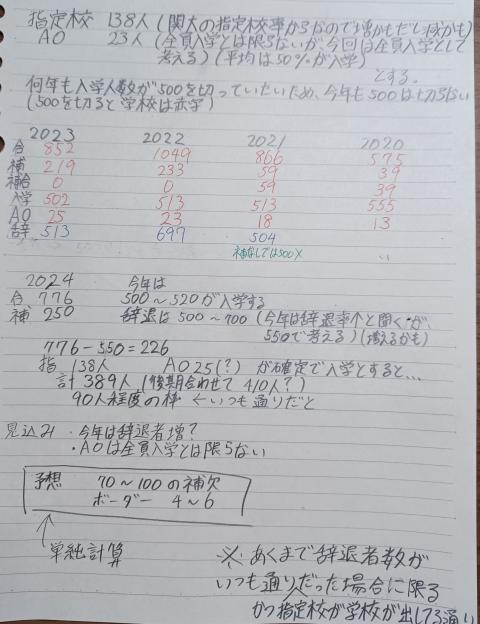 指定校 138人(関大の指定校事からなので増かもだし減かも)
AO 23人(全員入学とは限らないが、今回は全員入学として
考える)(平均は50%が入学)
とする。
何年も入学人数が500を切っていたいため、今年も500は切らない
(500を切ると学校は赤字)
2023 2022 2021 2020
合 852 1049 866 575
補 219 233 59 39
補合 0 0 59 39
入学 502 513 513 555
AO 25 23 18 13
辞 513 697 504
補なしでは500× 〃
2024 今年は
合 776 500~520が入学する
補 250 辞退は500~700(今年は辞退率个と聞くが、
550で考える)(増えるかも)
776-550=226
指 138人 AO25(?)が確定で入学とすると…
計389人(後期合わせて410人?)
90人程度の枠 ←いつも通りだと
見込み ・今年は辞退者増?
・AOは全員入学とは限らない
予想 70~100の補欠
ボーダー 4~6
↑
単純計算
※あくまで辞退者数が
いつも通りだった場合に限る
かつ指定校が学校が出してる通り